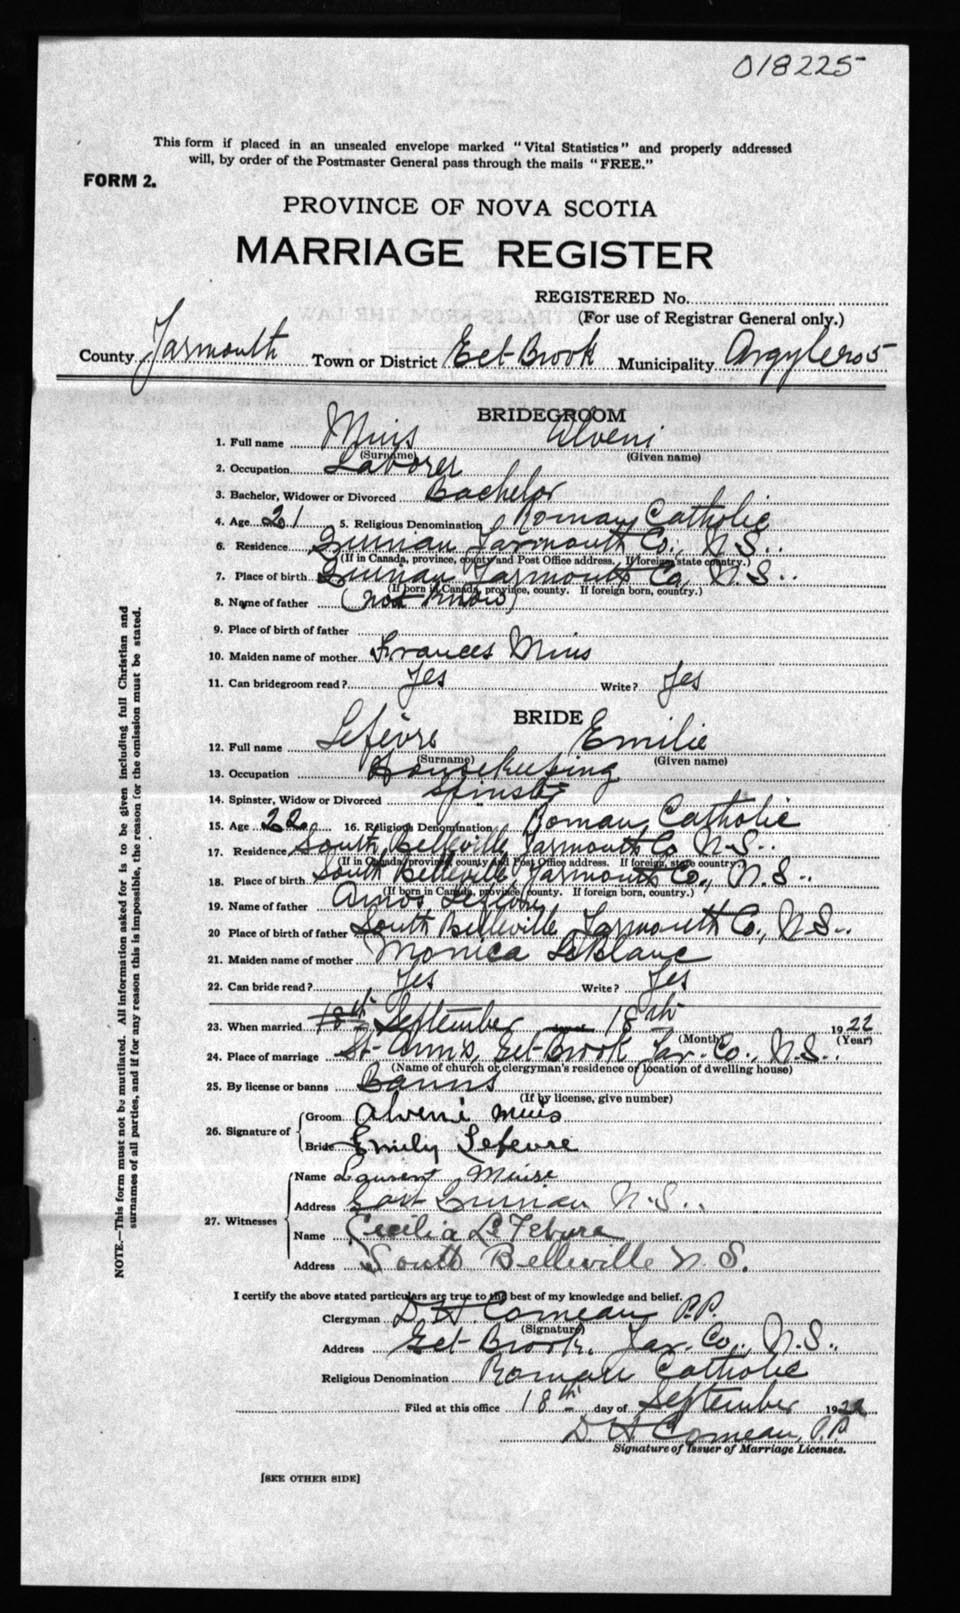 018225
This form if placed in an unsealed envelope marked "Vital Statistics" and properly addressed
will, by order of the Postmaster General pass through the mails "FREE."
FORM 2.
PROVINCE OF NOVA SCOTIA
MARRIAGE REGISTER
REGISTERED No.
(For use of Registrar General only.)
County Yarmouth Town or District Eel-Brook Municipality Argyle
BRIDEGROOM
1. Full name Muis Alveni
(Surname) (Given name)
2. Occupation Laborer
3. Bachelor, Widower or Divorced Bachelor
4. Age 21 5. Religious Denomination Roman Catholic
6. Residence Quinan Yarmouth Co., N.S.
(If in Canada, province, county and Post Office address. If foreign, state country.)
7. Place of birth Quinan Yarmouth Co, N.S.
(If born in Canada, province, county. If foreign born, country.)
8. Name of father (not know)
9. Place of birth of father
10. Maiden name of mother Frances Mius
11. Can bridegroom read? Yes Write? Yes
BRIDE
12. Full name Lefevre Emilie
(Surname) (Given name)
13. Occupation Housekeeping
14. Spinster, Widow or Divorced Spinster
15. Age 22 16. Religious Denomination Roman Catholic
17. Residence South Belleville Yarmouth Co N.S.
(If in Canada, province, county and Post Office address. If foreign, state country.)
18. Place of birth South Belleville Yarmouth Co., N.S.
(If born in Canada, province, county. If foreign born, country.)
19. Name of father Amos Lefevre
20 Place of birth of father South Belleville Yarmouth Co., N.S.
21. Maiden name of mother Monica LeBlanc
22. Can bride read? Yes Write? Yes
23. When married 18th September 18th 1922
(Month) (Year)
24. Place of marriage St-Ann's, Eel-Brook Yar. Co., N.S.
(Name of church or clergyman's residence or location of dwelling house)
25. By license or banns Banns
(If by license, give number)
26. Signature of Groom Alveni Muis
Bride Emily Lefevre
27. Witnesses Name Laurent Muise
Address East Quinan N.S.
Name Cecilia LeFebvre
Address South Belleville N.S.
I certify the above stated particulars are true to the best of my knowledge and belief.
Clergyman D. H. Comeau P.P.
(Signature)
Address Eel-Brook, Yar. Co., N.S.
Religious Denomination Roman Catholic
Filed at this office 18th day of September 1922
D. H Comeau, P.P.
Signature of Issuer of Marriage Licenses.
[SEE OTHER SIDE]
NOTE.—This form must not be mutilated. All information asked for is to be given including full Christian and
surnames of all parties, and if for any reason this is impossible, the reason for the omission must be stated.